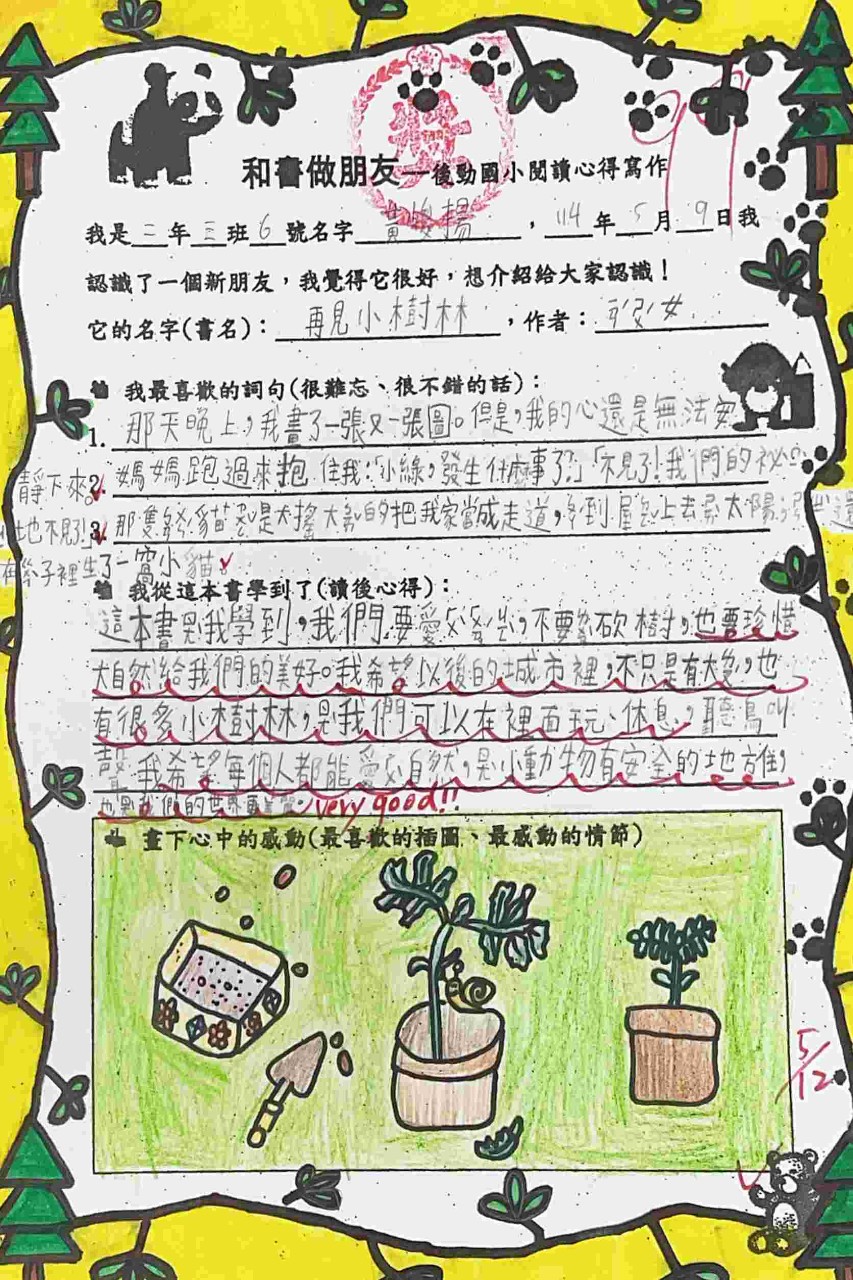 和書做朋友—後勁國小閱讀心得寫作
我是三年三班6號名字黃俊揚，114年5月9日我
認識了一個新朋友，我覺得它很好，想介紹給大家認識！
它的名字(書名)：再見小樹林，作者：
我最喜歡的詞句(很難忘、很不錯的話)：
1. 那天晚上，我畫了一張又一張圖。但是，我的心還是無法安
靜下來。
2. 媽媽跑過來抱住我：「小綠，發生什麼事了？」「不見了！我們的祕
地不見了！
3. 那隻貓是大搖大的把我家當成走道，到屋上去太陽，還
在箱子裡生了一窩小貓
我從這本書學到了(讀後心得)：
這本書ㄖㄤ我學到，我們要愛，不要砍樹，也要珍惜
大自然給我們的美好。我希望以後的城市裡，不只是有大，也
有很多小樹林，ㄖㄤ我們可以在裡面玩、休息，聽鳥叫
聲。我希望每個人都能愛自然，小動物有安全的地方住，
我們的世界更美麗。very good!!
畫下心中的感動(最喜歡的插圖、最感動的情節)
5/12